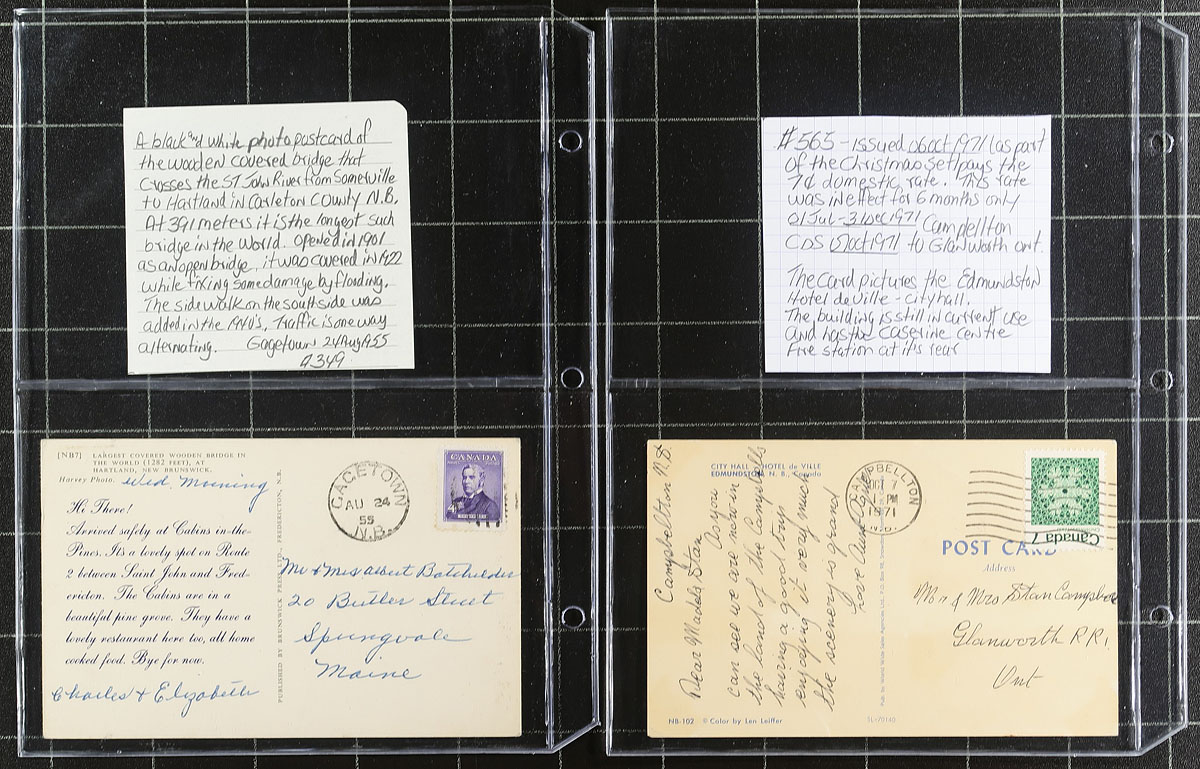 A black and white photo postcard of
the wooden covered bridge that
crosses the ST John River from Somerville
to Hartland in Carleton County N.B.
At 391 meters it is the longest such
bridge in the World. Opened in 1901
as an open bridge, it was covered in 1922
while fixing some damage by flooding.
The sidewalk on the south side was
added in the 1940's, Traffic is one way
alternating. Gagetown 24 Aug 1955
A349
#565 - Issued 06 Oct 1971 (as part
of the Christmas set) pays the
7¢ domestic rate. This rate
was in effect for 6 months only
01 Jul - 31 Dec 1971
CDS Oct 1971 to Glanworth Ont.
The card pictures the Edmundston
Hotel de Ville - City hall.
The building is still in current use
and has the Caserine Centre
Fire station at it's rear
[NB7] LARGEST COVERED WOODEN BRIDGE IN
THE WORLD (1282 FEET), AT
HARTLAND, NEW BRUNSWICK.
Harvey Photo.
Wed. Morning
Hi, There!
Arrived safely at Cabins in-the-
Pines. Its a lovely spot on Route
2 between Saint John and Fred-
ericton. The Cabins are in a
beautiful pine grove. They have a
lovely restaurant here too, all home
cooked food. Bye for now.
Charles & Elizabeth
PUBLISHED BY BRUNSWICK PRESS LTD., FREDERICTON, N.B.
GAGETOWN
AU 24
55
N.B.
CANADA
4
Mr & Mrs Albert
20 Butler Street
Springvale
Maine
CITY HALL - HOTEL de VILLE
EDMUNDSTON, N. B., Canada
Campbellton N.B
Dear Madel & Stan
Again
can see we are
the land of the Campbells
having a good trip
enjoying it very much
the scenery is grand
Love
NB-102 © Color by Len Leiffer
SL-70140
CAMPBELLTON
OCT 7
PM
1971
N.B.
Canada 7
POST CARD
Address
Mr & Mrs Stan Campbell
Glanworth RR1
Ont